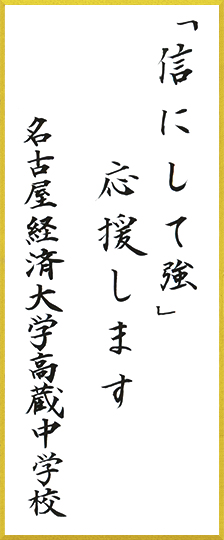 「信にして強」
応援します
名古屋経済大学高蔵中学校